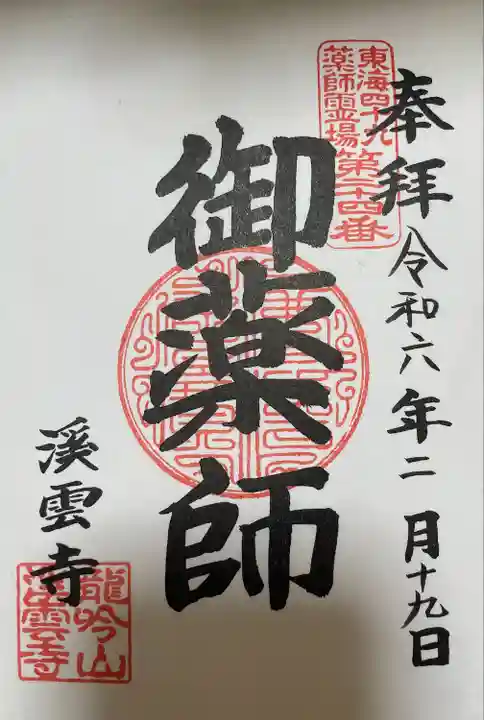 奉拝
令和六年二月十九日
東海四十九
薬師霊場第二十四番
御薬師
溪雲寺
龍吟山
溪雲寺